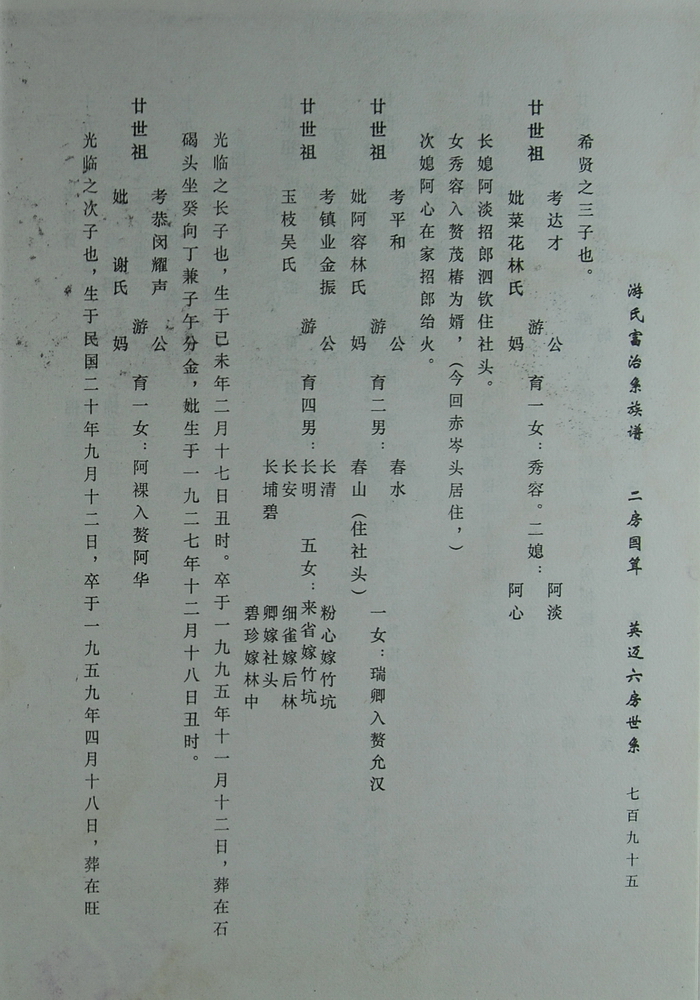 游氏富治系族谱 二房国茸 英迈六房世系 七百九十五
希贤之三子也。
廿世祖 考达才 游公 育一女：秀容。二媳：阿淡
妣菜花林氏 妈 阿心
长媳阿淡招郎泗钦住社头。
女秀容入赘茂椿为婿，（今回赤岑头居住，）
次媳阿心在家招郎给火。
廿世祖 考平和 游公 育二男：春水
妣阿容林氏 妈 春山（住社头） 一女：瑞卿入赘允汉
廿世祖 考镇业金振 游公 育四男：长清 五女：粉心嫁竹坑
玉枝吴氏 长明 来省嫁竹坑
长安 细雀嫁后林
长埔碧 卿嫁社头
碧珍嫁林中
光临之长子也，生于己未年二月十七日丑时。卒于一九九五年十一月十二日，葬在石
碣头坐癸向丁兼子午分金，妣生于一九二七年十二月十八日丑时。
廿世祖 考恭闵耀声 游公 育一女：阿裸入赘阿华
妣 谢氏 妈
光临之次子也，生于民国二十年九月十二日，卒于一九五九年四月十八日，葬在旺